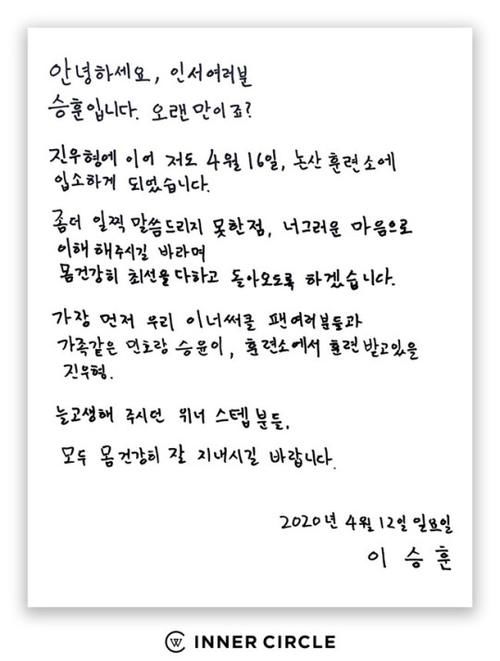 안녕하세요, 인서여러분
승훈입니다. 오랜만이죠?
진우형에 이어 저도 4월 16일, 논산 훈련소에
입소하게 되었습니다.
좀더 일찍 말씀드리지 못한점, 너그러운 마음으로
이해 해주시길 바라며
몸건강히 최선을다하고 돌아오도록 하겠습니다.
가장 먼저 우리 이너써클 팬여러분들과
가족같은 민호랑 승윤이, 훈련소에서 훈련 받고있을
진우형.
늘고생해 주시던 위너 스텝분들,
모두 몸건강히 잘 지내시길 바랍니다.
2020년 4월 12일 일요일
이 승 훈
INNER CIRCLE